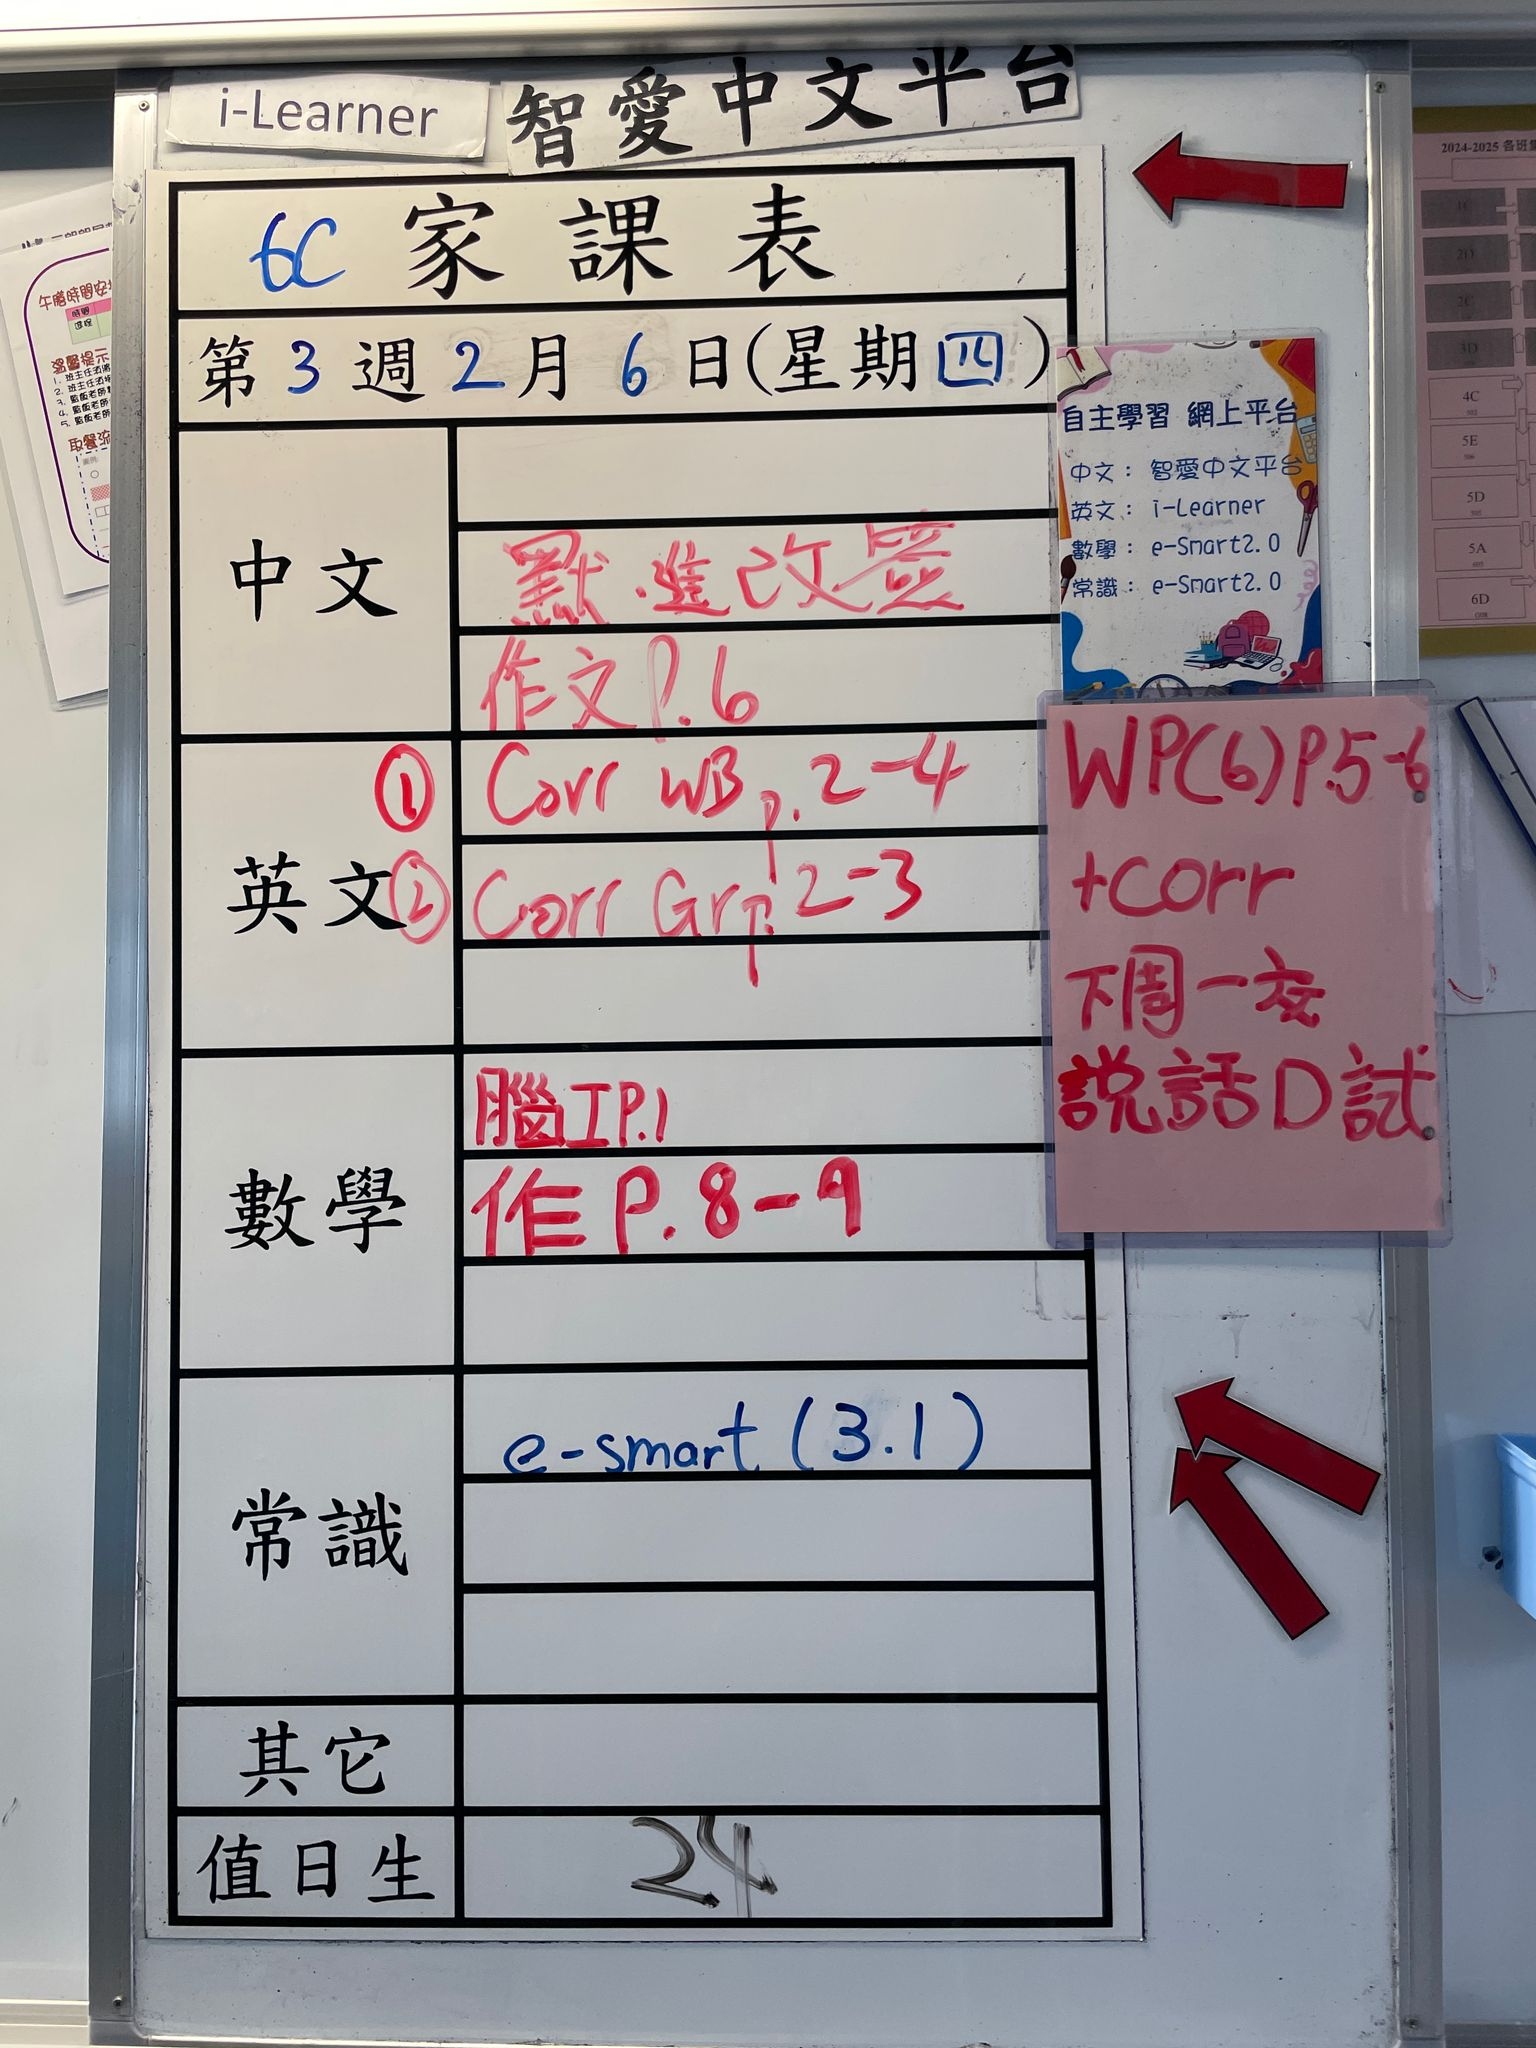 i-Learner
智愛中文平台
6C 家課表
第3週2月6日(星期四)
中文
默.進改簽
作文P.6
英文
① Corr WB p.2-4
② Corr Gr p.2-3
數學
腦工P.1
作P.8-9
常識
e-smart (3.1)
其它
值日生
24
自主學習 網上平台
中文： 智愛中文平台
英文： i-Learner
數學： e-Smart2.0
常識： e-Smart2.0
WP(6)P.5-6
+corr
下周一交
説話D試
午膳時間安
溫馨提示
取餐流
2024-2025 各班
1C
2D
2C
3D
4C
5E
5D
5A
6D